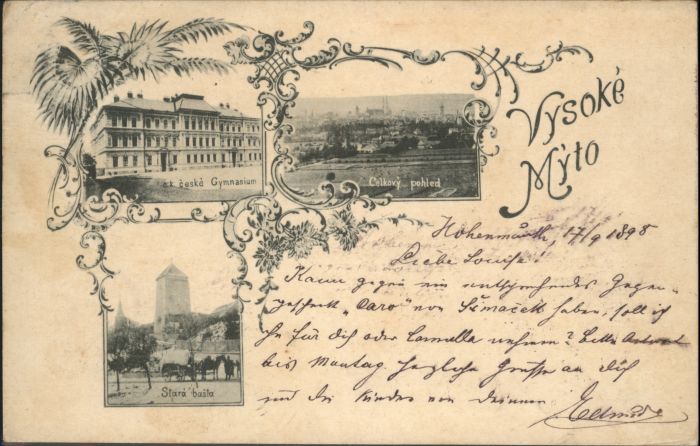 Vysoké
Mýto
c.k. česká Gymnasium
Celkový pohled
Stará bašta
Hohenmauth, 17/9 1898
Liebe Louise!
Kann gegen ein entsprechendes Gegen-
geschenk „Caro" von Šimaček haben, soll ich
ihn für dich oder Camilla nehmen? Bitte Antwort
bis Montag. Herzliche Grüsse an Dich
und die Kinder von Deinem